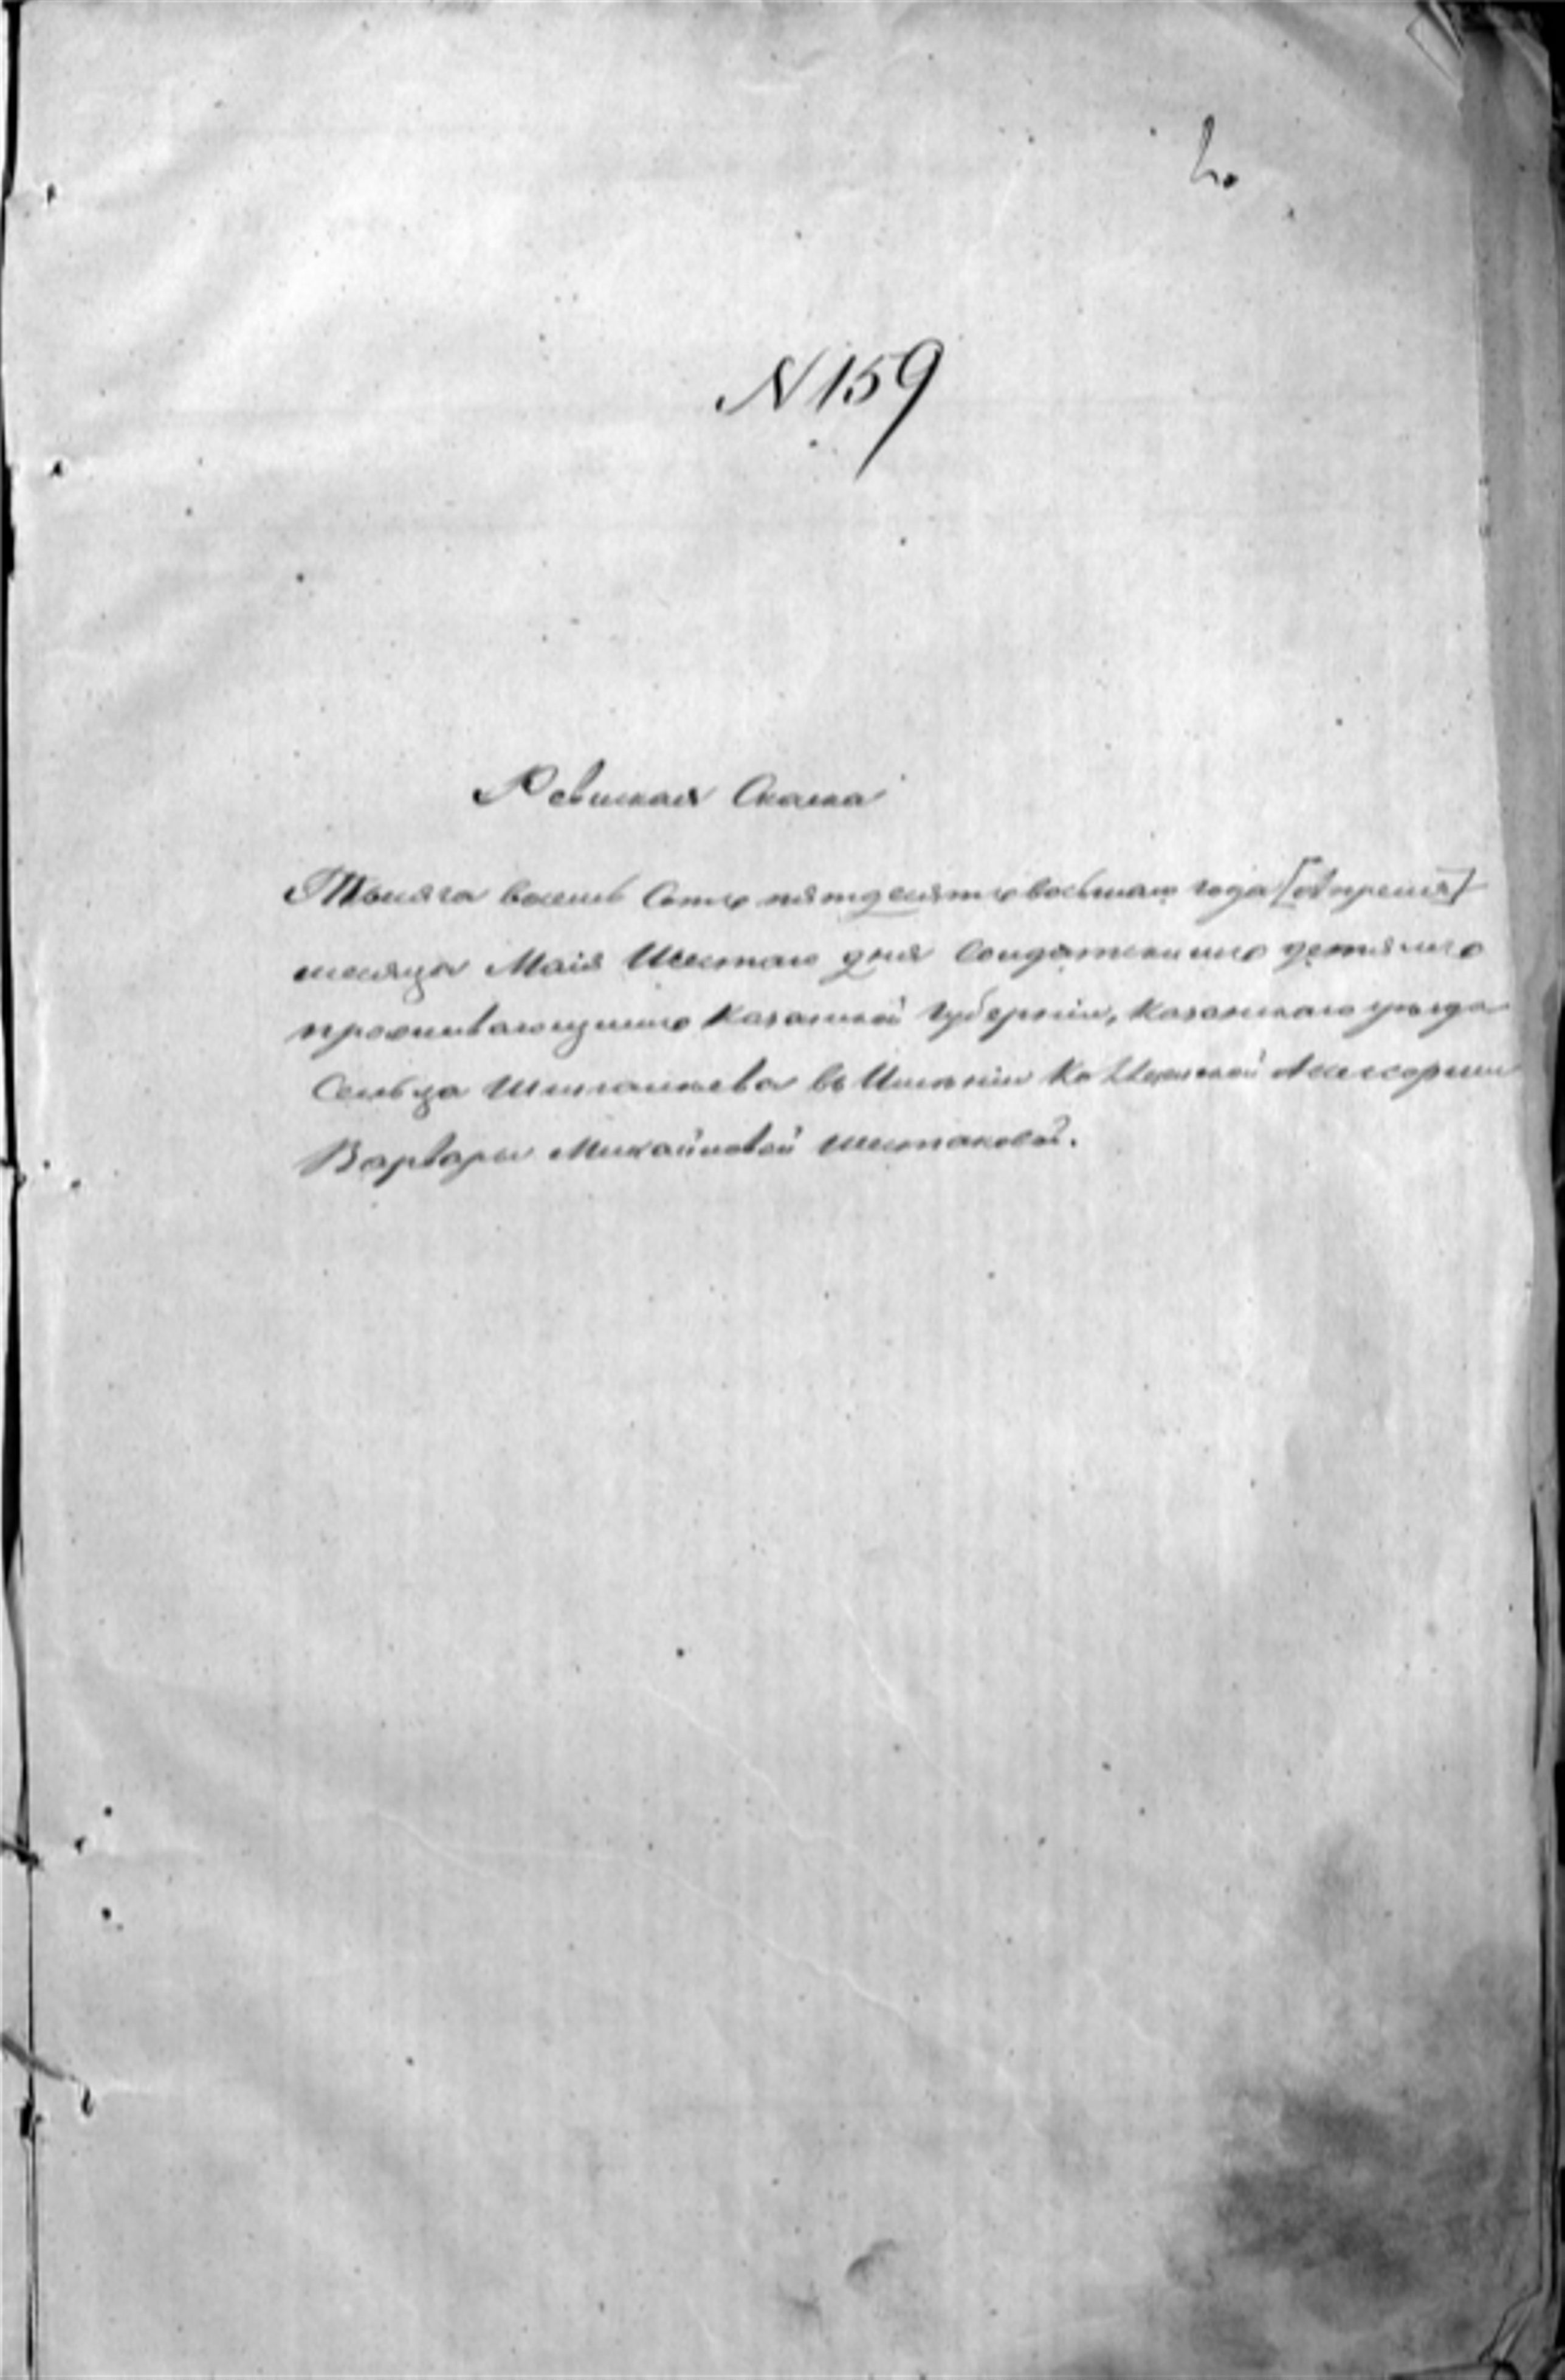 N 159
Ревиская Скаска
Тысяча восемь Сотъ пятдесятъ восьмаго года [апреля]
месяца Маія Шестаго дня Солдатскимъ детямъ
проживающимъ Казанской Губерніи, Казанскаго уезда
Сельца в Именіи Ассесорши
Варвары Михайловой Шестаковой.